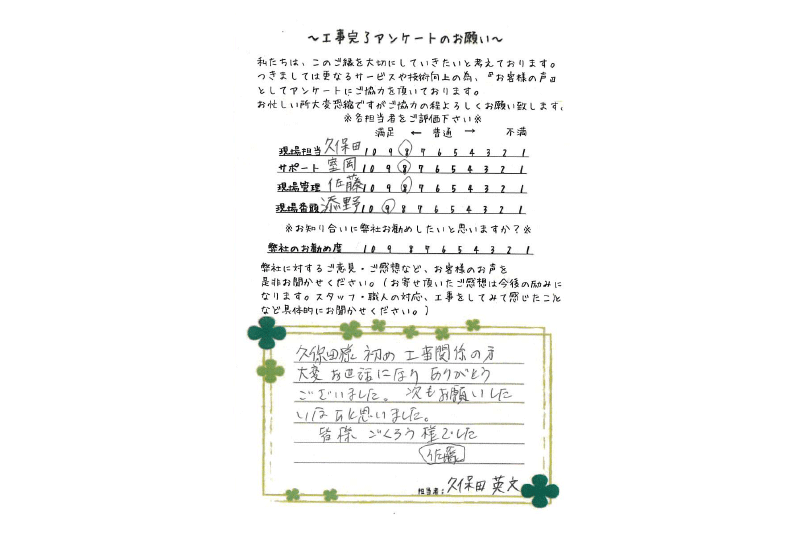 ～工事完了アンケートのお願い～
私たちは、このご縁を大切にしていきたいと考えております。
つきましては更なるサービスや技術向上の為、『お客様の声』
としてアンケートにご協力を頂いております。
お忙しい所大変恐縮ですがご協力の程よろしくお願い致します。
※各担当者をご評価下さい※
満足 ← 普通 → 不満
現場担当 久保田 10 9 8 7 6 5 4 3 2 1
サポート 室岡 10 9 8 7 6 5 4 3 2 1
現場管理 佐藤 10 9 8 7 6 5 4 3 2 1
現場番頭 添野 10 9 8 7 6 5 4 3 2 1
※お知り合いに弊社お勧めしたいと思いますか？※
弊社のお勧め度 10 9 8 7 6 5 4 3 2 1
弊社に対するご意見・ご感想など、お客様のお声を
是非お聞かせください。(お寄せ頂いたご感想は今後の励みに
なります。スタッフ・職人の対応、工事をしてみて感じたこと
など具体的にお聞かせください。)
久保田様 初め 工事関係の方
大変 お世話になり ありがとう
ございました。 次もお願いした
いなあと思いました。
皆様 ごくろう様でした
佐藤
担当者: 久保田 英文